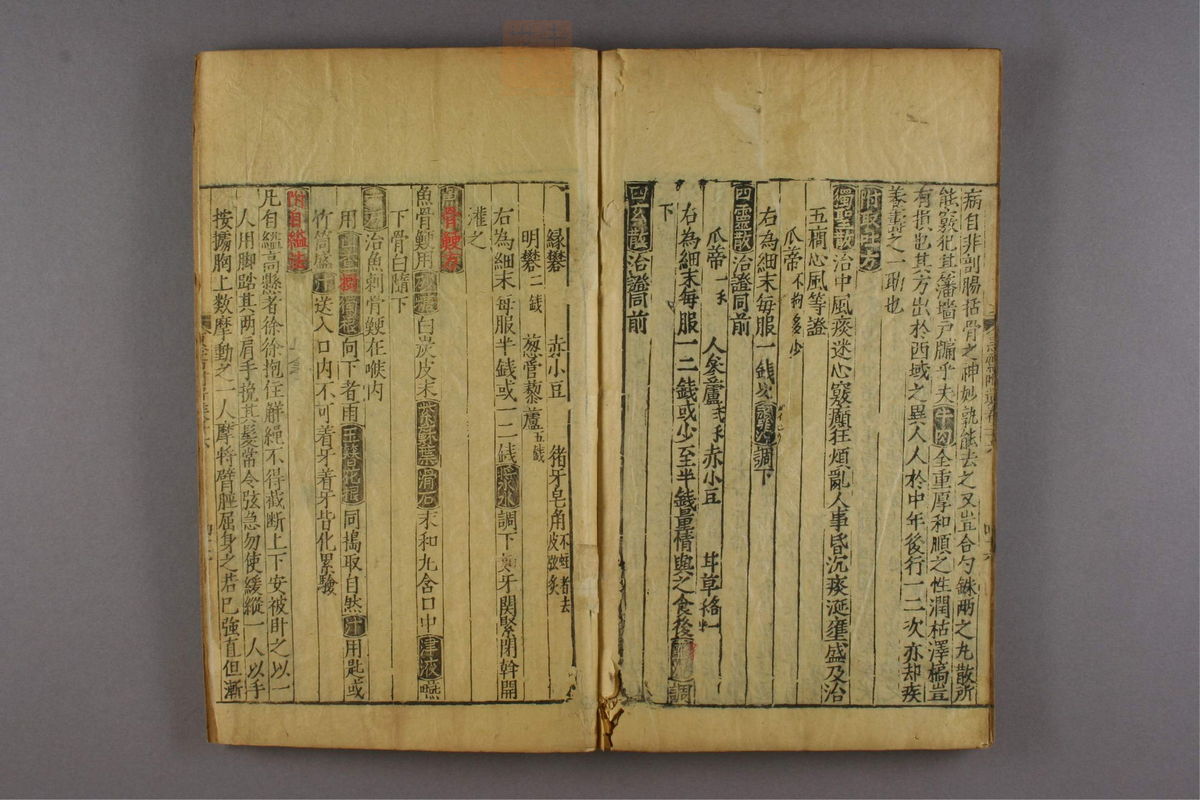 病自非剖腸括骨之神妙孰能去之又豈合勺銖兩之丸散所
能竅犯其藩墻戶牖乎夫牛肉全重厚和順之性潤枯澤槁豈
有損也其方出於西域之異人人於中年後行一二次亦却疾
養壽之一助也
附取吐方
獨聖散治中風痰迷心竅癲狂煩亂人事昏沉痰涎壅盛及治
五癎心風等證
瓜蒂不拘多少
右為細末每服一錢 調下
四靈散治證同前
瓜蒂一 人參蘆 赤小豆 甘草
右為細末每服一二錢或少至半錢量情與之食後 調
下
四玄散治證同前
緑礬 赤小豆 猪牙皂角不蛀者去皮弦炙
明礬二錢 葱管藜蘆五錢
右為細末每服半錢或一二錢漿水調下如牙関緊閉斡開
灌之
骨鯁方
魚骨鯁用 白炭皮末紫蘇葉滑石末和丸含口中津液嚥
下骨自隨下
治魚刺骨鯁在喉内
用 獨根向下者用玉簪花根同搗取自然汁用匙或
竹筒盛汁送入口内不可着牙着牙皆化累驗
附自縊法
凡自縊高縣者徐徐抱住觧繩不得截断上下安被卧之以一
人用脚踏其两肩手挽其髪常令弦急勿使緩縱一人以手
按擄胸上数摩動之一人摩将臂脛屈身之若已強直但漸